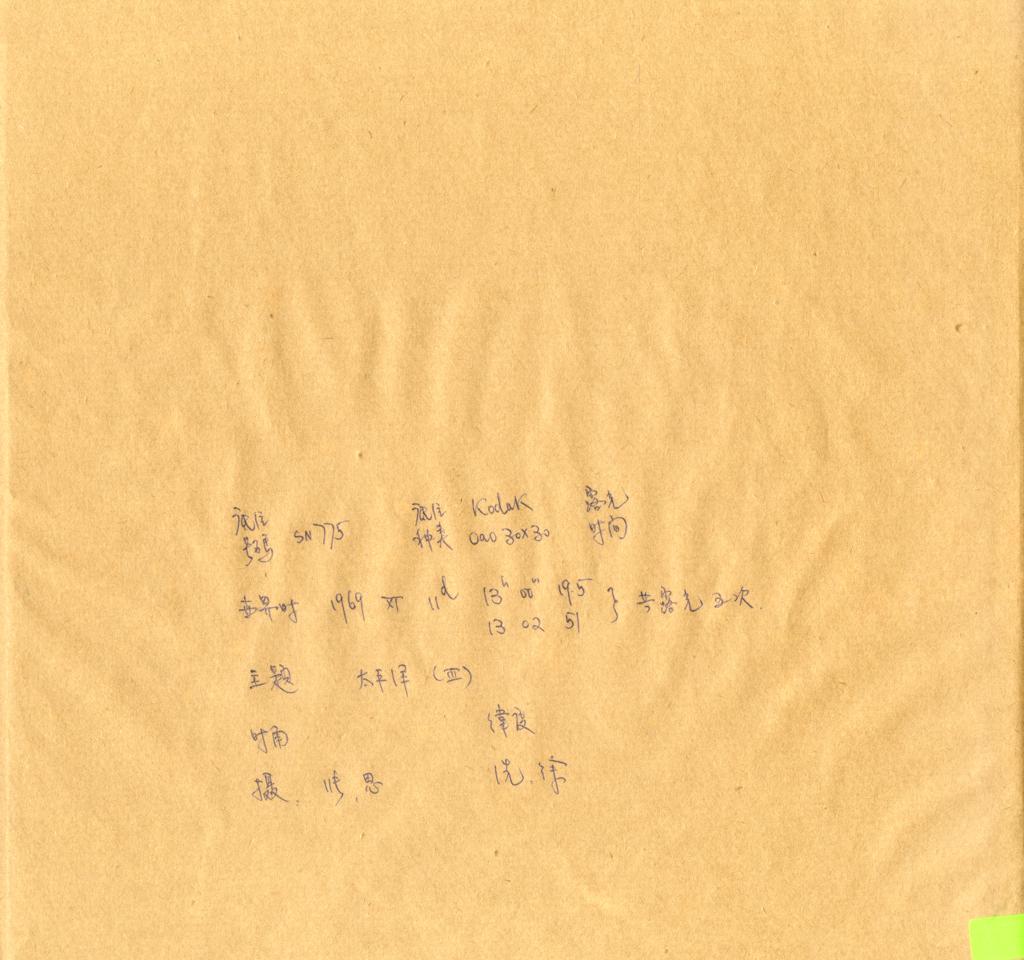 底片 号码 SN775 底片 种类 Kodak 0a0 30x30 露光 时间
世界时 1969 XI 11d 13h 00m 19.5
13 02 51 } 共露光 五次.
主题 太平洋 (III)
时角 纬度
摄. 思 洗. 徐